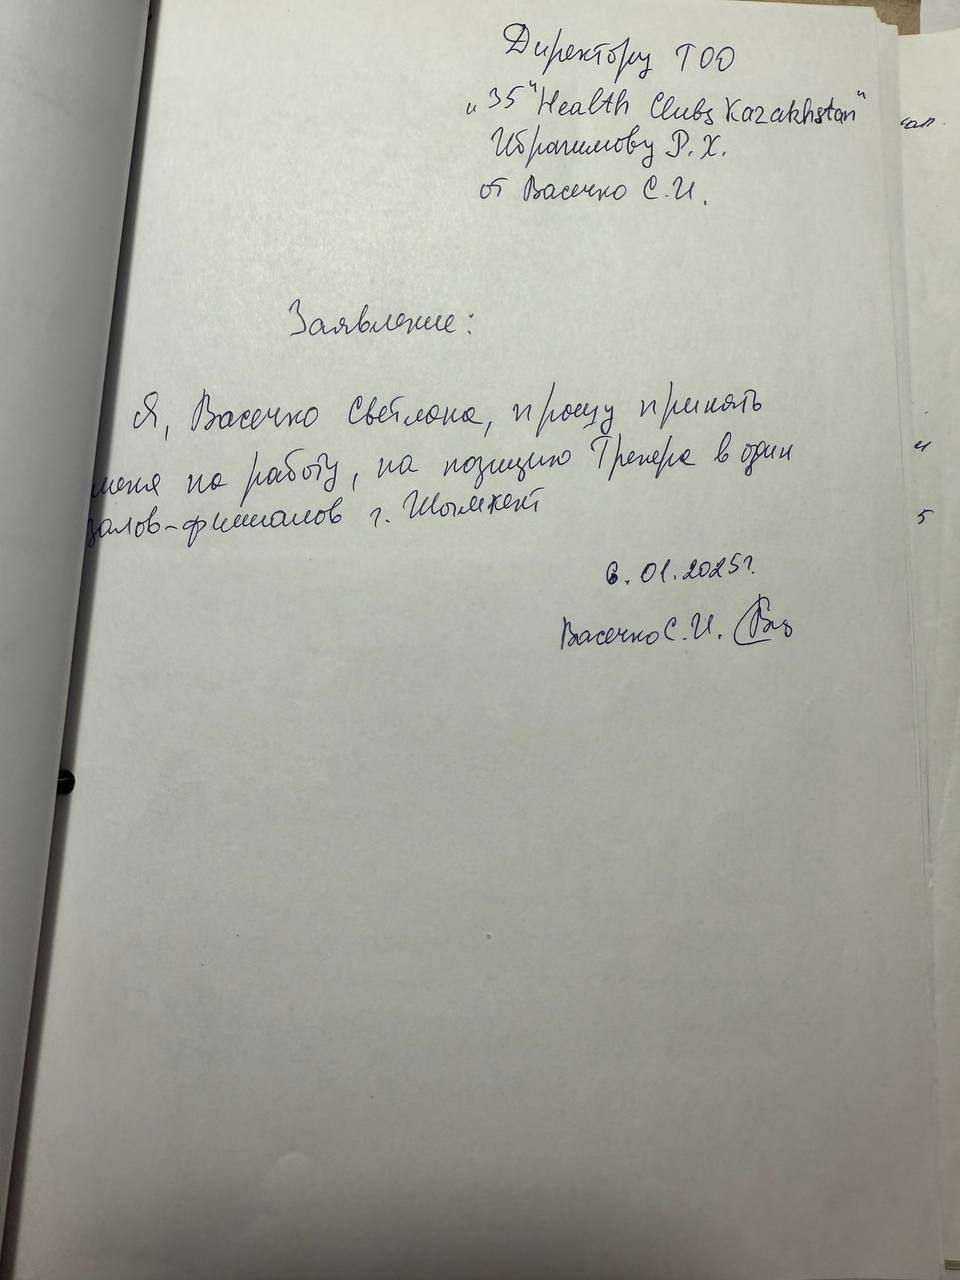 Директору ТОО
„35" Health Clubs Kazakhstan"
Ибрагимову Р. Х.
от Васечко С.И.
Заявление:
Я, Васечко Светлана, прошу принять
меня на работу, на позицию Тренера в один
залов-филиалов г. Шымкент
6. 01.2025г.
Васечко С.И.
4
5